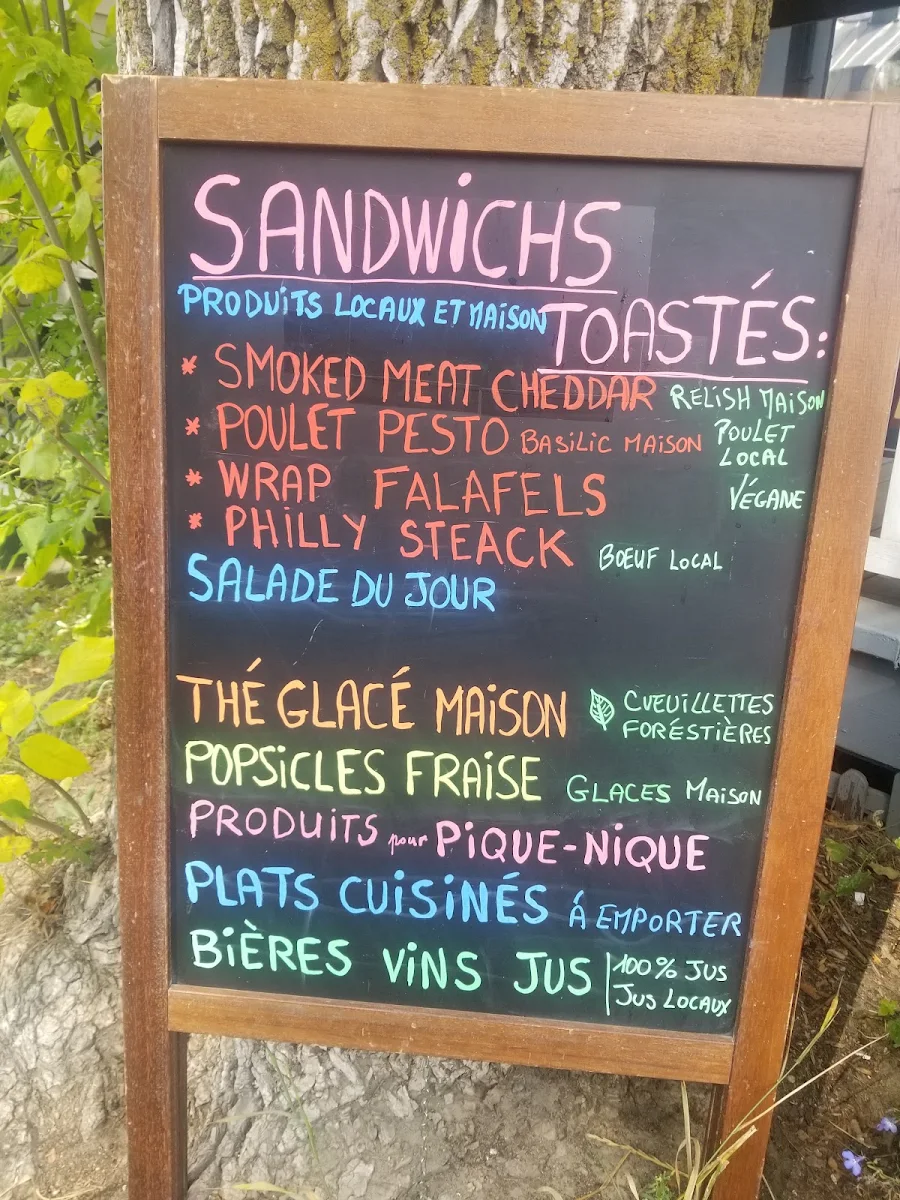 SANDWiCHS
PRODUiTS LOCAUX ET MAiSON
TOASTÉS:
* SMOKED MEAT CHEDDAR RELiSH MAiSON
* POULET PESTO BASiLiC MAiSON POULET LOCAL
* WRAP FALAFELS VÉGANE
* PHiLLY STEACK BOEUF LOCAL
SALADE DU JOUR
THÉ GLACÉ MAiSON CUEUiLLETTES FORÉSTiÈRES
POPSiCLES FRAiSE GLACES MAiSON
PRODUiTS pour PiQUE-NiQUE
PLATS CUiSiNÉS Á EMPORTER
BiÈRES ViNS JUS 100% JUS
JUS LOCAUX